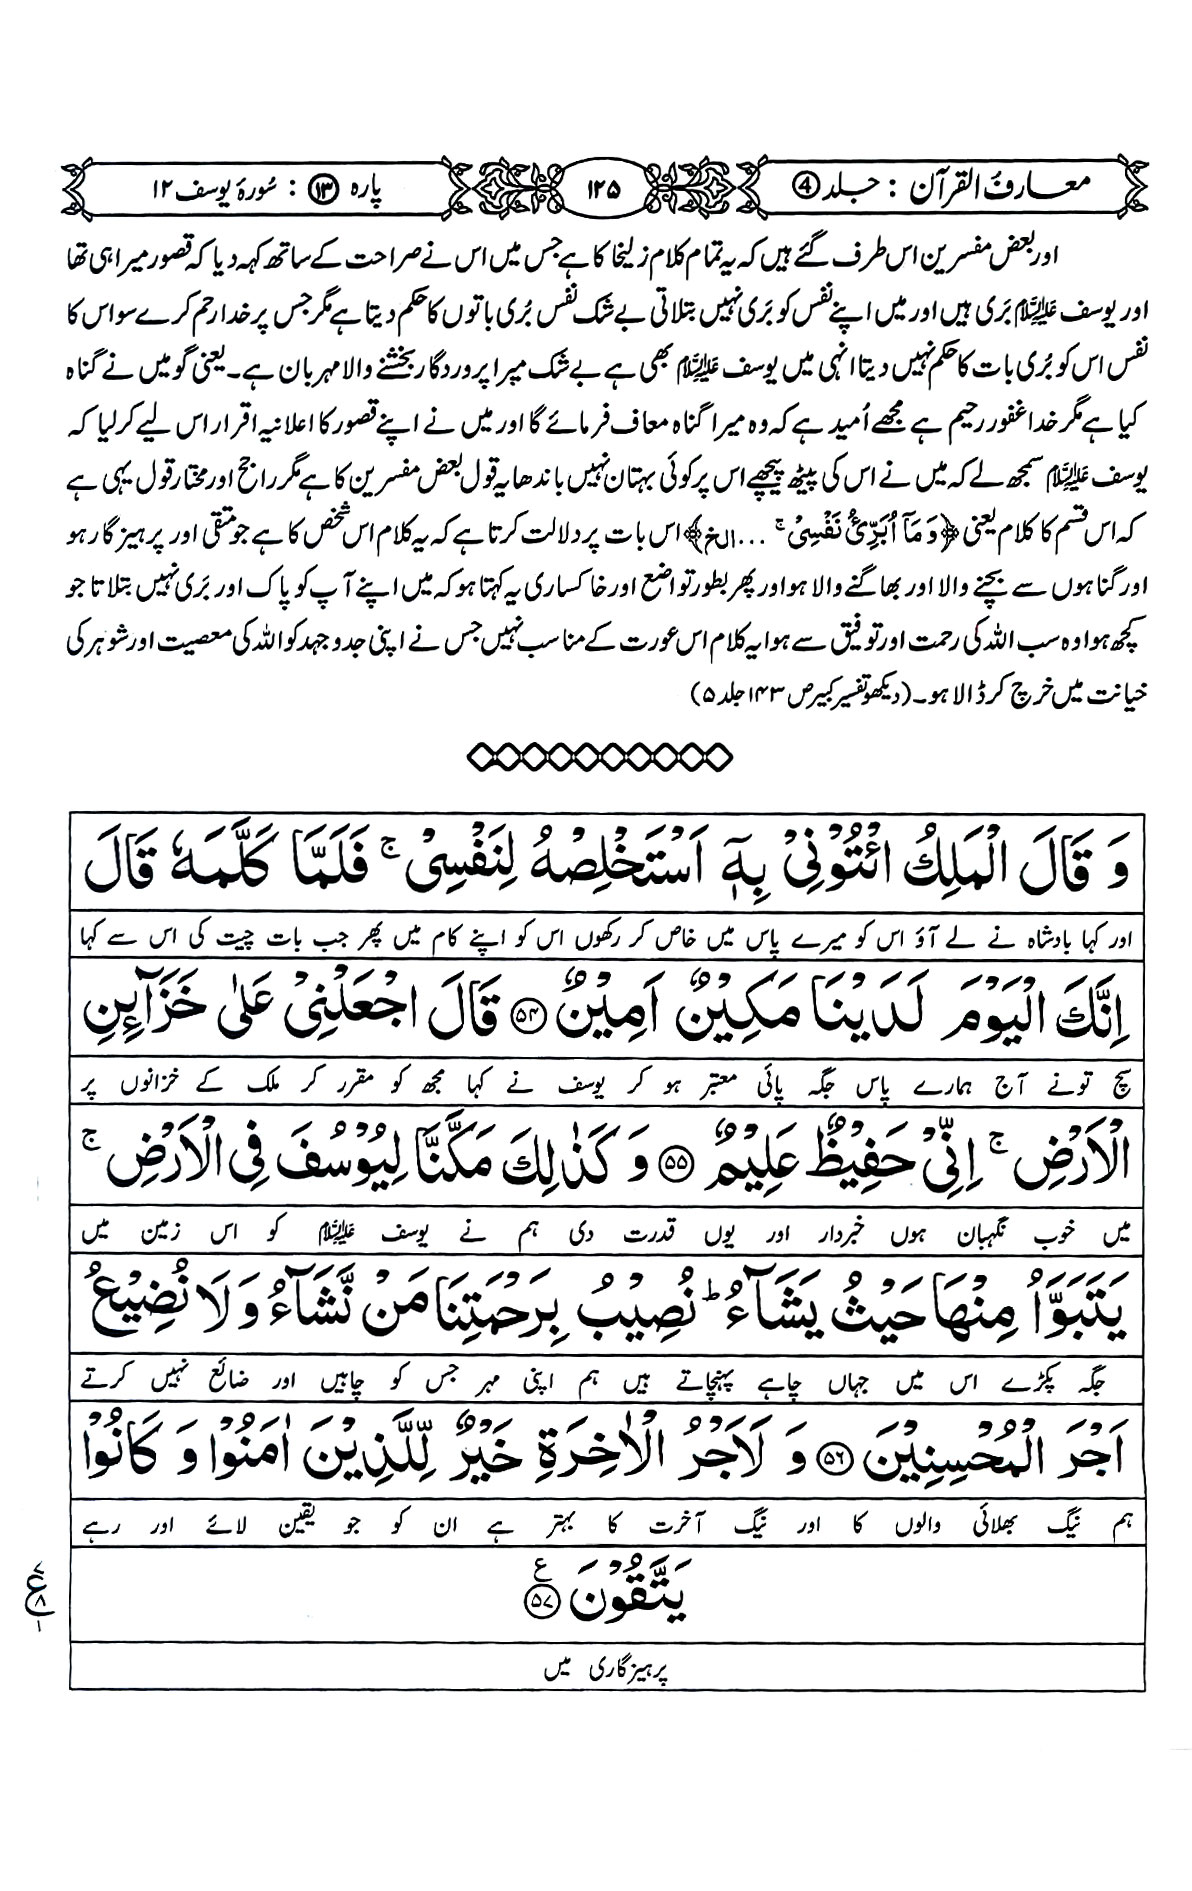 معارف القرآن : جلد ④ ۱۲۵ پارہ ⑬ : سُورۂ یوسف ۱۲
اور بعض مفسرین اس طرف گئے ہیں کہ یہ تمام کلام زلیخا کا ہے جس میں اس نے صراحت کے ساتھ کہہ دیا کہ قصور میرا ہی تھا
اور یوسف علیہ السلام بَری ہیں اور میں اپنے نفس کو بَری نہیں بتلاتی بے شک نفس بُری باتوں کا حکم دیتا ہے مگر جس پر خدا رحم کرے سو اس کا
نفس اس کو بُری بات کا حکم نہیں دیتا انہی میں یوسف علیہ السلام بھی ہے بے شک میرا پروردگار بخشنے والا مہربان ہے۔ یعنی گو میں نے گناہ
کیا ہے مگر خدا غفور رحیم ہے مجھے اُمید ہے کہ وہ میرا گناہ معاف فرمائے گا اور میں نے اپنے قصور کا اعلانیہ اقرار اس لیے کر لیا کہ
یوسف علیہ السلام سمجھ لے کہ میں نے اس کی پیٹھ پیچھے اس پر کوئی بہتان نہیں باندھا یہ قول بعض مفسرین کا ہے مگر راجح اور مختار قول یہی ہے
کہ اس قسم کا کلام یعنی ﴿وَمَآ اُبَرِّئُ نَفْسِیْ ۚ ... الخ﴾ اس بات پر دلالت کرتا ہے کہ یہ کلام اس شخص کا ہے جو متقی اور پرہیزگار ہو
اور گناہوں سے بچنے والا اور بھاگنے والا ہو اور پھر بطور تواضع اور خاکساری یہ کہتا ہو کہ میں اپنے آپ کو پاک اور بَری نہیں بتلاتا جو
کچھ ہوا وہ سب اللہ کی رحمت اور توفیق سے ہوا یہ کلام اس عورت کے مناسب نہیں جس نے اپنی جدوجہد کو اللہ کی معصیت اور شوہر کی
خیانت میں خرچ کر ڈالا ہو۔ (دیکھو تفسیر کبیر ص ۱۴۳ جلد ۵)
وَ قَالَ الْمَلِكُ ائْتُوْنِیْ بِهٖۤ اَسْتَخْلِصْهُ لِنَفْسِیْ ۚ فَلَمَّا كَلَّمَهٗ قَالَ
اور کہا بادشاہ نے لے آؤ اس کو میرے پاس میں خاص کر رکھوں اس کو اپنے کام میں پھر جب بات چیت کی اس سے کہا
اِنَّكَ الْیَوْمَ لَدَیْنَا مَكِیْنٌ اَمِیْنٌ ۝۵۴ قَالَ اجْعَلْنِیْ عَلٰى خَزَآىِٕنِ
سچ تونے آج ہمارے پاس جگہ پائی معتبر ہو کر یوسف نے کہا مجھ کو مقرر کر ملک کے خزانوں پر
الْاَرْضِ ۚ اِنِّیْ حَفِیْظٌ عَلِیْمٌ ۝۵۵ وَ كَذٰلِكَ مَكَّنَّا لِیُوْسُفَ فِی الْاَرْضِ ۚ
میں خوب نگہبان ہوں خبردار اور یوں قدرت دی ہم نے یوسف علیہ السلام کو اس زمین میں
یَتَبَوَّاُ مِنْهَا حَیْثُ یَشَآءُ ؕ نُصِیْبُ بِرَحْمَتِنَا مَنْ نَّشَآءُ وَ لَا نُضِیْعُ
جگہ پکڑے اس میں جہاں چاہے پہنچاتے ہیں ہم اپنی مہر جس کو چاہیں اور ضائع نہیں کرتے
اَجْرَ الْمُحْسِنِیْنَ ۝۵۶ وَ لَاَجْرُ الْاٰخِرَةِ خَیْرٌ لِّلَّذِیْنَ اٰمَنُوْا وَ كَانُوْا
ہم نیگ بھلائی والوں کا اور نیگ آخرت کا بہتر ہے ان کو جو یقین لائے اور رہے
یَتَّقُوْنَ ۝۵۷ ع
پرہیزگاری میں
ع ۷ ۸ ۱